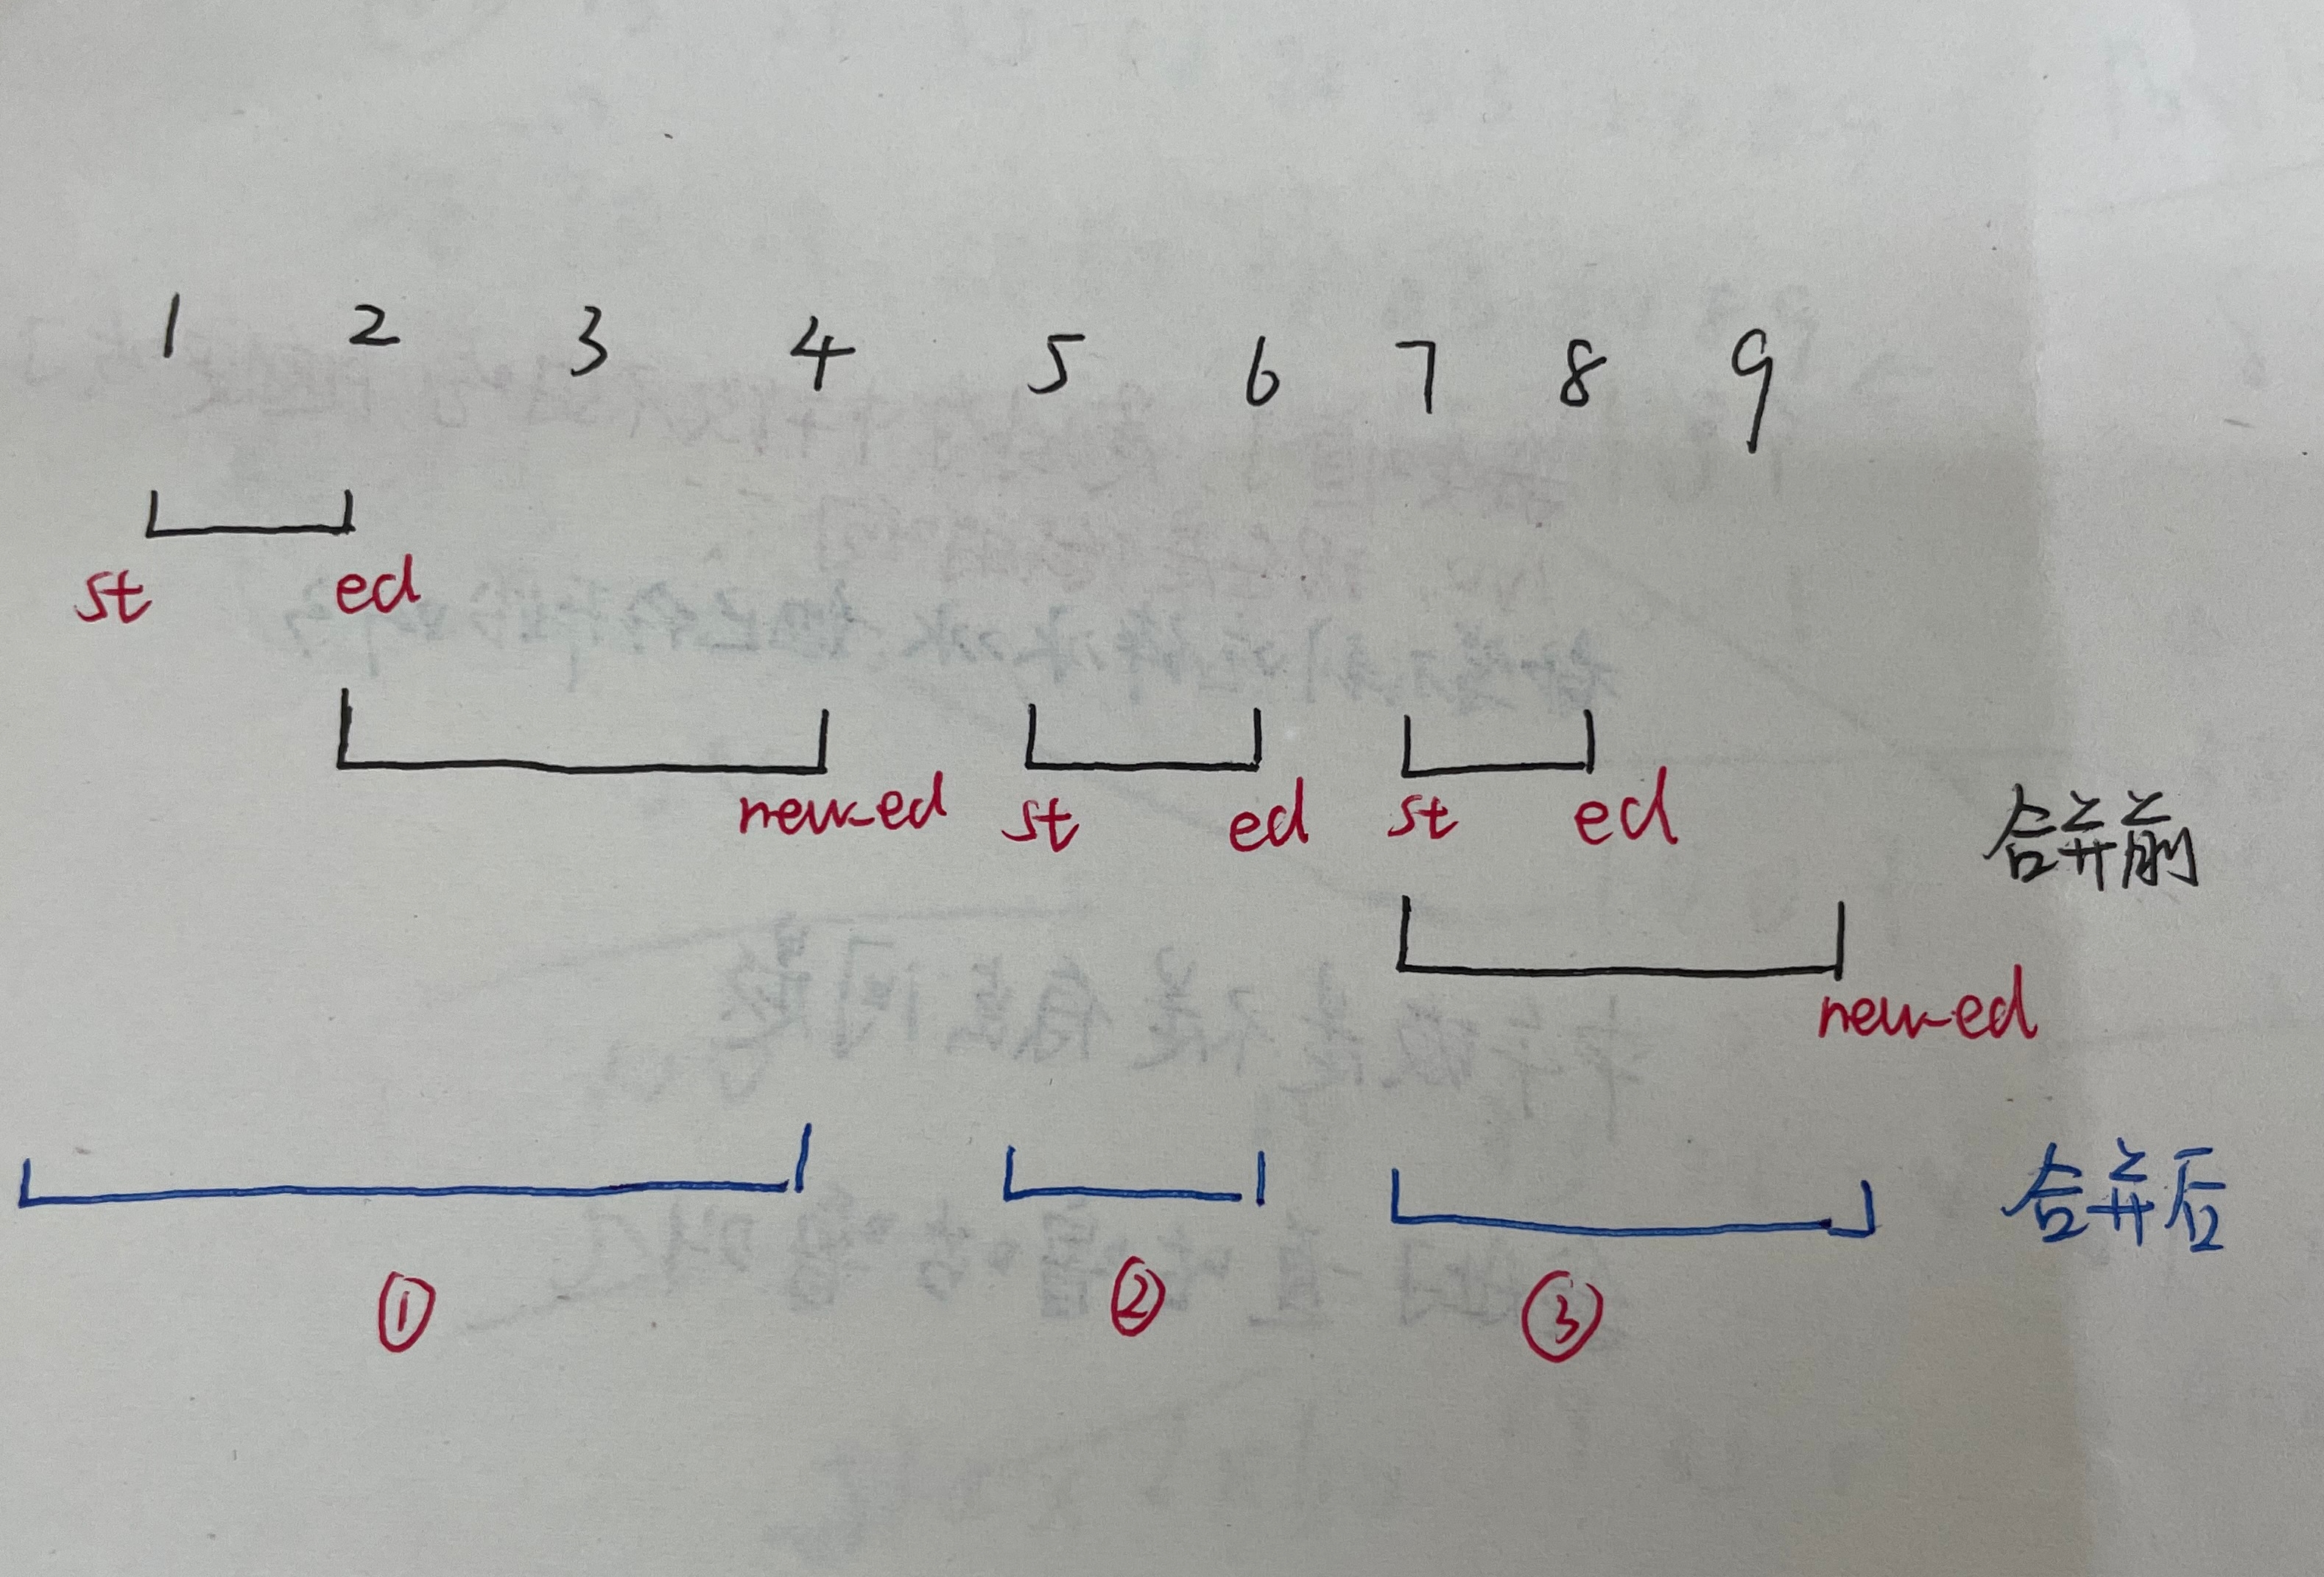 1 2 3 4 5 6 7 8 9
st ed
new-ed st ed st ed
合并前
new-ed
合并后
① ② ③